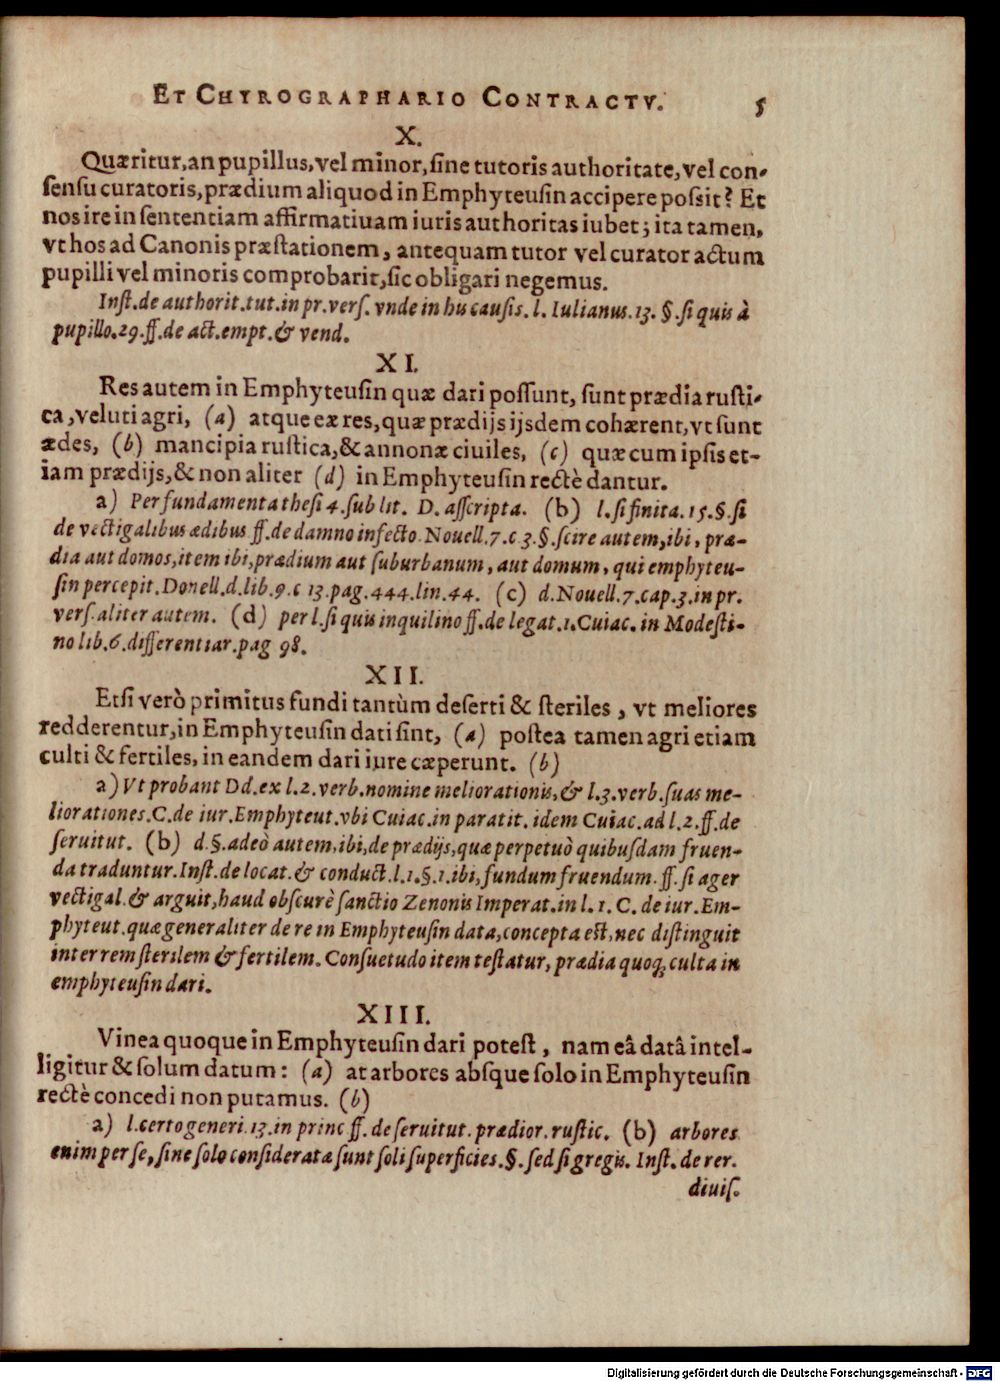 ET CHYROGRAPHARIO CONTRACTV. 5
X.
Quæritur, an pupillus, vel minor, ſine tutoris authoritate, vel con-
ſenſu curatoris, prædium aliquod in Emphyteuſin accipere poſsit? Et
nos ire in ſententiam affirmatiuam iuris authoritas iubet; ita tamen,
vt hos ad Canonis præſtationem, antequam tutor vel curator actum
pupilli vel minoris comprobarit, ſic obligari negemus.
Inſt. de authorit. tut. in pr. verſ. vnde in his cauſis. l. Iulianus. 13. §. ſi quis à
pupillo. 29. ff. de act. empt. & vend.
XI.
Res autem in Emphyteuſin quæ dari poſſunt, ſunt prædia ruſti-
ca, veluti agri, (a) atque eæ res, quæ prædijs ijsdem cohærent, vt ſunt
ædes, (b) mancipia ruſtica, & annonæ ciuiles, (c) quæ cum ipſis et-
iam prædijs, & non aliter (d) in Emphyteuſin rectè dantur.
a) Per fundamenta theſi 4. ſub lit. D. aſſcripta. (b) l. ſi finita. 15. §. ſi
de vectigalibus ædibus ff. de damno infecto. Nouell. 7. c 3. §. ſcire autem, ibi, præ-
dia aut domos, item ibi, prædium aut ſuburbanum, aut domum, qui emphyteu-
ſin percepit. Donell. d. lib. 9. c 13. pag. 444. lin. 44. (c) d. Nouell. 7. cap. 3. in pr.
verſ. aliter autem. (d) per l. ſi quis inquilino ff. de legat. 1. Cuiac. in Modeſti-
no lib. 6. differentiar. pag 98.
XII.
Etſi verò primitus fundi tantùm deſerti & ſteriles, vt meliores
redderentur, in Emphyteuſin dati ſint, (a) poſtea tamen agri etiam
culti & fertiles, in eandem dari iure cæperunt. (b)
a) Vt probant Dd. ex l. 2. verb. nomine meliorationis, & l. 3. verb. ſuas me-
liorationes. C. de iur. Emphyteut. vbi Cuiac. in paratit. idem Cuiac. ad l. 2. ff. de
ſeruitut. (b) d. §. adeò autem, ibi, de prædijs, quæ perpetuò quibuſdam fruen-
da traduntur. Inſt. de locat. & conduct. l. 1. §. 1. ibi, fundum fruendum. ff. ſi ager
vectigal. & arguit, haud obſcurè ſanctio Zenonis Imperat. in l. 1. C. de iur. Em-
phyteut. quæ generaliter de re in Emphyteuſin data, concepta eſt, nec diſtinguit
inter rem ſterilem & fertilem. Conſuetudo item teſtatur, prædia quoq; culta in
emphyteuſin dari.
XIII.
Vinea quoque in Emphyteuſin dari poteſt, nam eâ datâ intel-
ligitur & ſolum datum: (a) at arbores abſque ſolo in Emphyteuſin
rectè concedi non putamus. (b)
a) l. certo generi. 13. in princ ff. de ſeruitut. prædior. ruſtic. (b) arbores
enim per ſe, ſine ſolo conſideratæ ſunt ſoli ſuperficies. §. ſed ſi gregis. Inſt. de rer.
diuiſ.
Digitalisierung gefördert durch die Deutsche Forschungsgemeinschaft - DFG